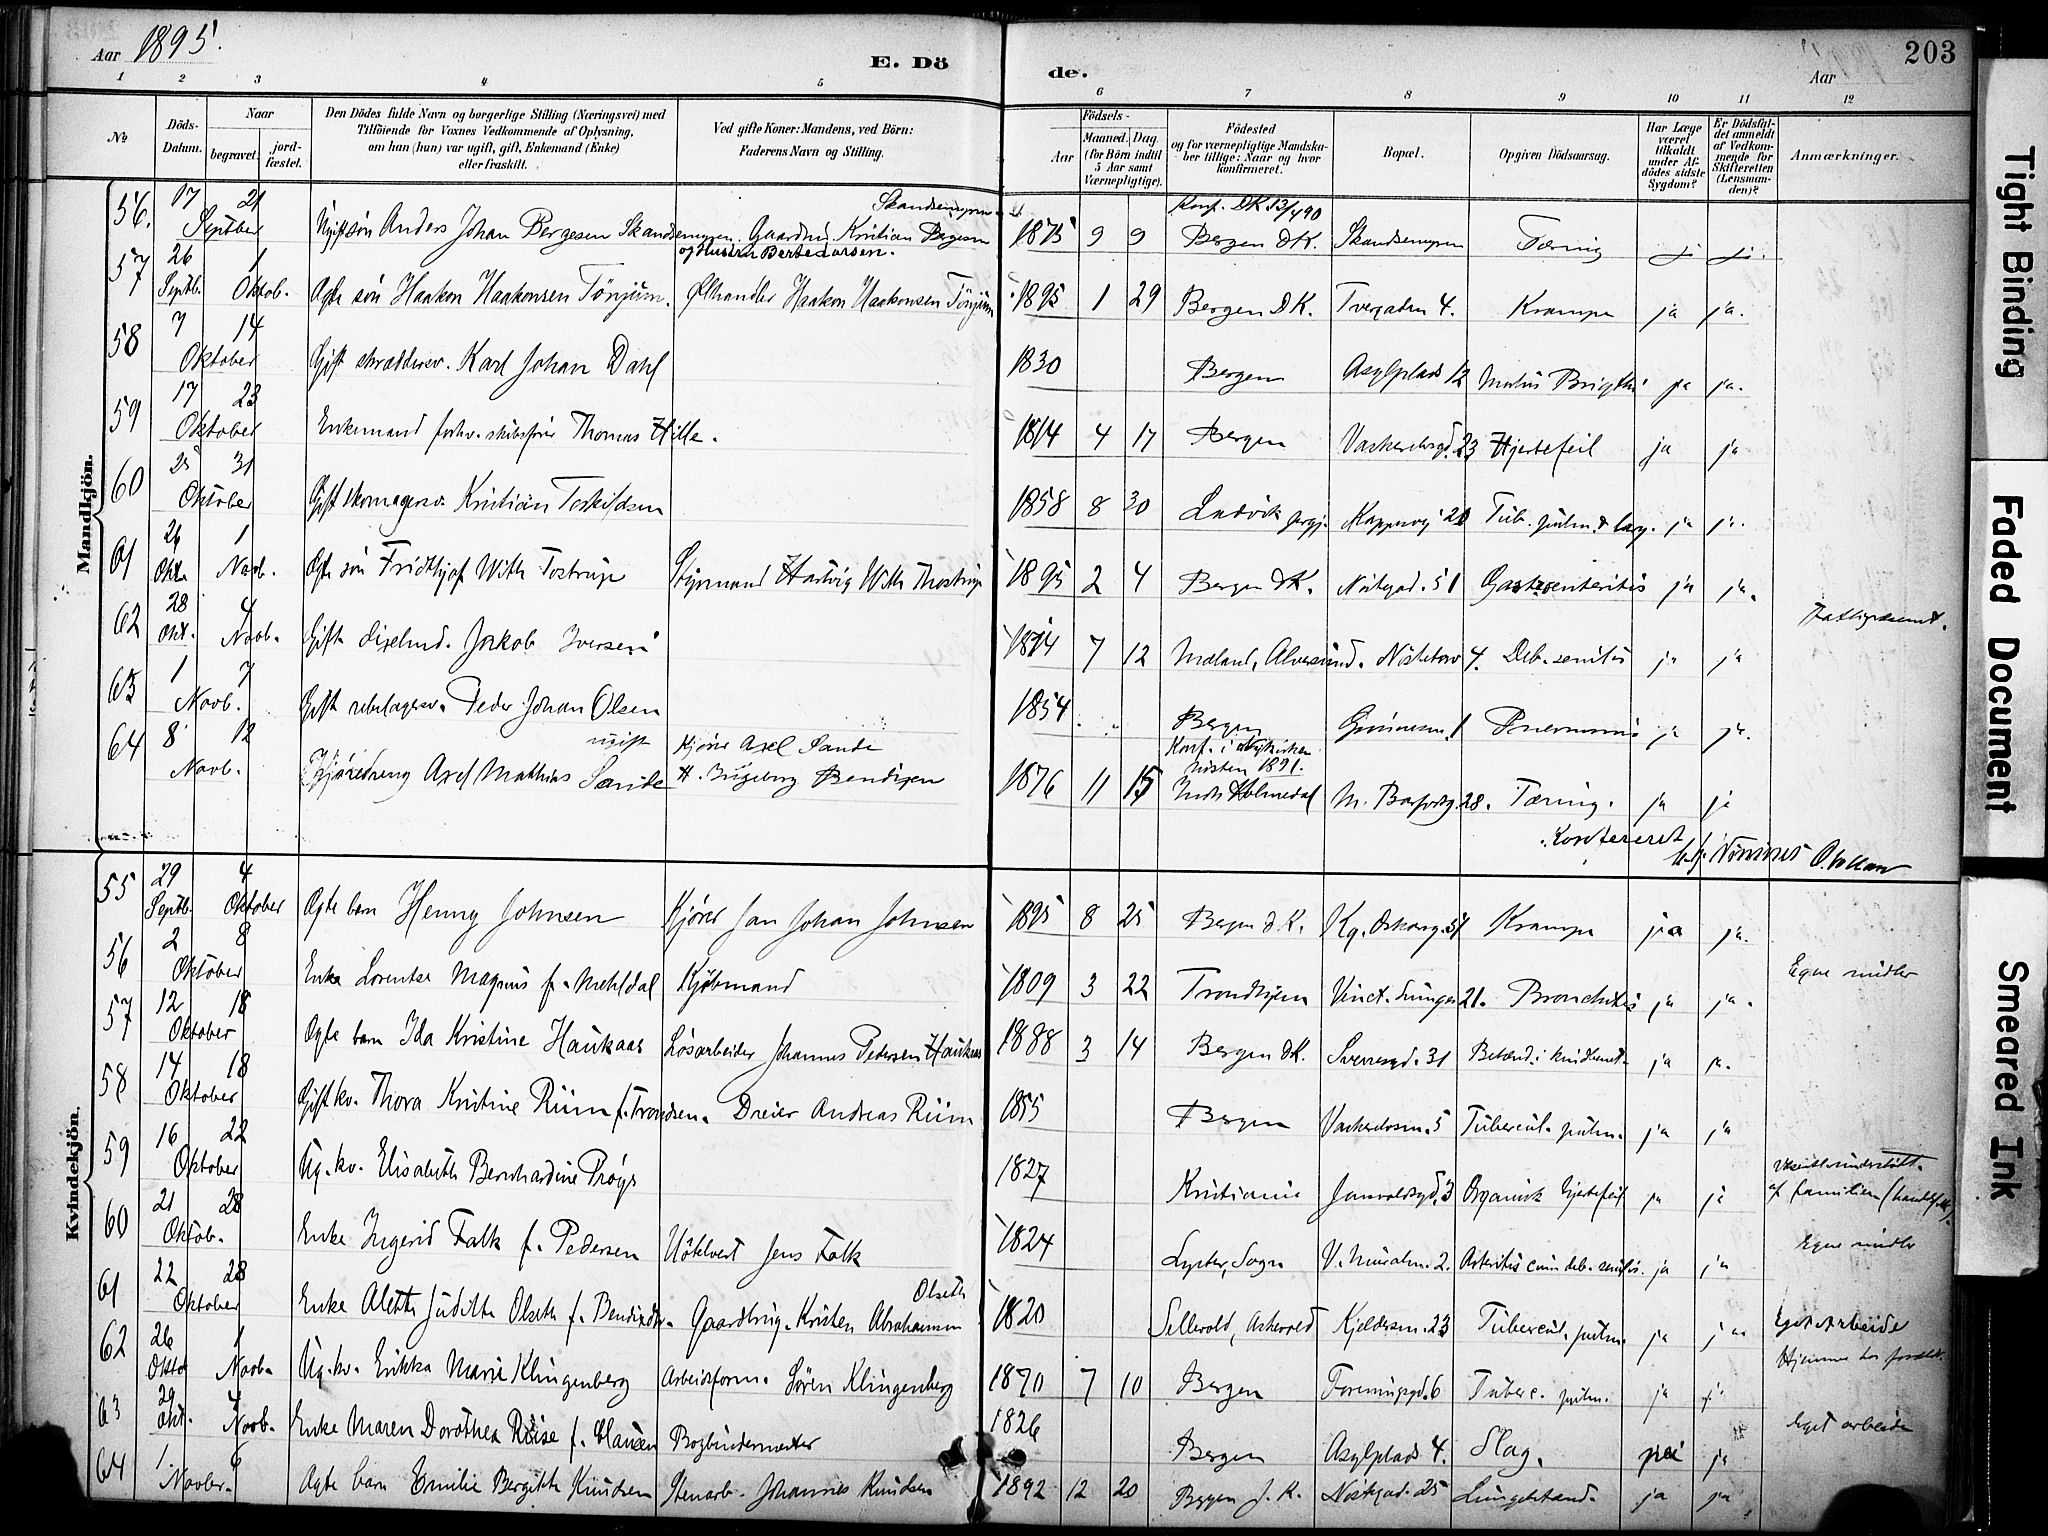 Aar 1895.
E. Dö
de.
Aar
203
1 2 3 4 5 6 7 8 9 10 11 12
No
Döds-Datum.
Naar
begravet.
jordfæstet.
Den Dödes fulde Navn og borgerlige Stilling (Næringsvei) med
Tilföiende for Voxnes Vedkommende af Oplysning,
om han (hun) var ugift, gift, Enkemand (Enke)
eller fraskilt.
Ved gifte Koner: Mandens, ved Börn:
Faderens Navn og Stilling.
Födsels-
Aar
Maaned. Dag.
(for Börn indtil 5 Aar samt Værnepligtige).
Födested
og for værnepligtige Mandskaber tillige: Naar og hvor konfirmeret.
Bopæl.
Opgiven Dödsaarsag.
Har Læge været tilkaldt under Afdödes sidste Sygdom?
Er Dödsfaldet anmeldt af Vedkommende for Skifteretten (Lensmanden)?
Anmærkninger.
Mandkjön.
56. 17 Septber 21 Anders Johan Bergesen Skandsemyren. Gaardbr. Kristian Bergesen Skandsemyren 1875 9 9 Konf. DK 13/4 90 Bergen DK. Skandsemyren Tæring j. j.
57 26 Septb. 1 Oktob. Ægte søn Haakon Haakonsen Tønjum. Ølhandler Haakon Haakonsen Tönjum 1895 1 29 Bergen DK. Tvergaden 4. Krampe ja ja.
58 7 14 Oktober Gift skræddersv. Karl Johan Dahl 1830 Bergen Asylplads 12 Morbus Brigthi ja ja.
59 17 23 Oktober Enkemand forhv. skibsfører Thomas Hille. 1814 4 17 Bergen 23 Hjertefeil ja ja
60 25 31 Oktober Gift skomagersv. Kristian Torkildsen 1858 8 30 Ladvik 20 Tub. pulm. & lary. ja ja.
61 26 Okt. 1 Novb. Ægte søn Fridthjof With Tostrup Styrmand Hartvig With Thostrup 1895 2 4 Bergen DK. Nöstegad. 51 Gastroenteritis ja ja.
62 28 Okt. 4 Novb. Gift Jakob Iversen 1814 7 12 Mæland, Alversund. Nöstetorv 4. Deb. senilis ja ja Fattigvæsenet.
63 1 7 Novb. Gift Peder Johan Olsen 1854 Bergen 1 Pneumoni ja ja.
64 8 12 Novb. ugift Kjøredreng Axel Mathias Sande Kjører Axel Sande H. Ingeborg Bendixen 1876 11 15 Konf. i Nykirken høsten 1891. Indr. Holmedal 28. Tæring. ja ja
Konfereret
Kvindekjön.
55 29 Septb. 4 Oktober Ægte barn Henny Johnsen Kjører Jan Johan Johnsen 1895 8 25 Bergen d.K. Kg. Oskarsg. 51 Krampe ja ja.
56 2 8 Oktober Enke Lorentse Magnus f. Mehldal Kjøbmand 1809 3 22 Trondhjem 21. Bronchitis ja ja. Egne midler
57 12 18 Oktober Ægte barn Ida Kristine Haukaas Løsarbeider Johannes Pedersen Haukaas 1888 3 14 Bergen d.K. Sverresgd. 31 ja ja.
58 14 18 Oktober Gift kv. Thora Kristine Riim f. Trondsen. Dreier Andreas Riim 1855 Bergen 5 Tubercul. pulm. ja ja
59 16 22 Oktober Ug. kv. Elisabeth Bernhardine Prøys 1827 Kristiania 3 Organisk hjertefeil ja ja af familien
60 21 28 Oktob. Enke Ingerid Falk f. Pedersen Jens Falk 1824 Lyster, Sogn V. Muralm. 2. Arteritis cum deb. senilis. ja ja Egne midler
61 22 28 Oktober Enke Alette Juditte Olseth f. Gaardbrug. Kristen Abrahamsen Olseth 1820 Askevold Kjeldersm. 23 Tubercul. pulm. ja ja Eget arbeide
62 26 Oktb 1 Novb. Ug. kv. Erikka Marie Klingenberg Arbeidsform. Søren Klingenberg 1870 7 10 Bergen Foreningsgd. 6 Tuberc. pulm. ja ja Hjemme hos foræld.
63 29 Okt. 4 Novb. Enke Maren Dorothea f. Clausen Bogbindermester 1826 Bergen Asylplads 4. Slag. nei ja Eget arbeide
64 1. 6 Novbr. Ægte barn Emilie Bergitte Knudsen Stenarb. Johannes Knudsen 1892 12 20 Bergen J. K. Nöstegad. 25 ja ja
Tight Binding
Faded Document
Smeared Ink